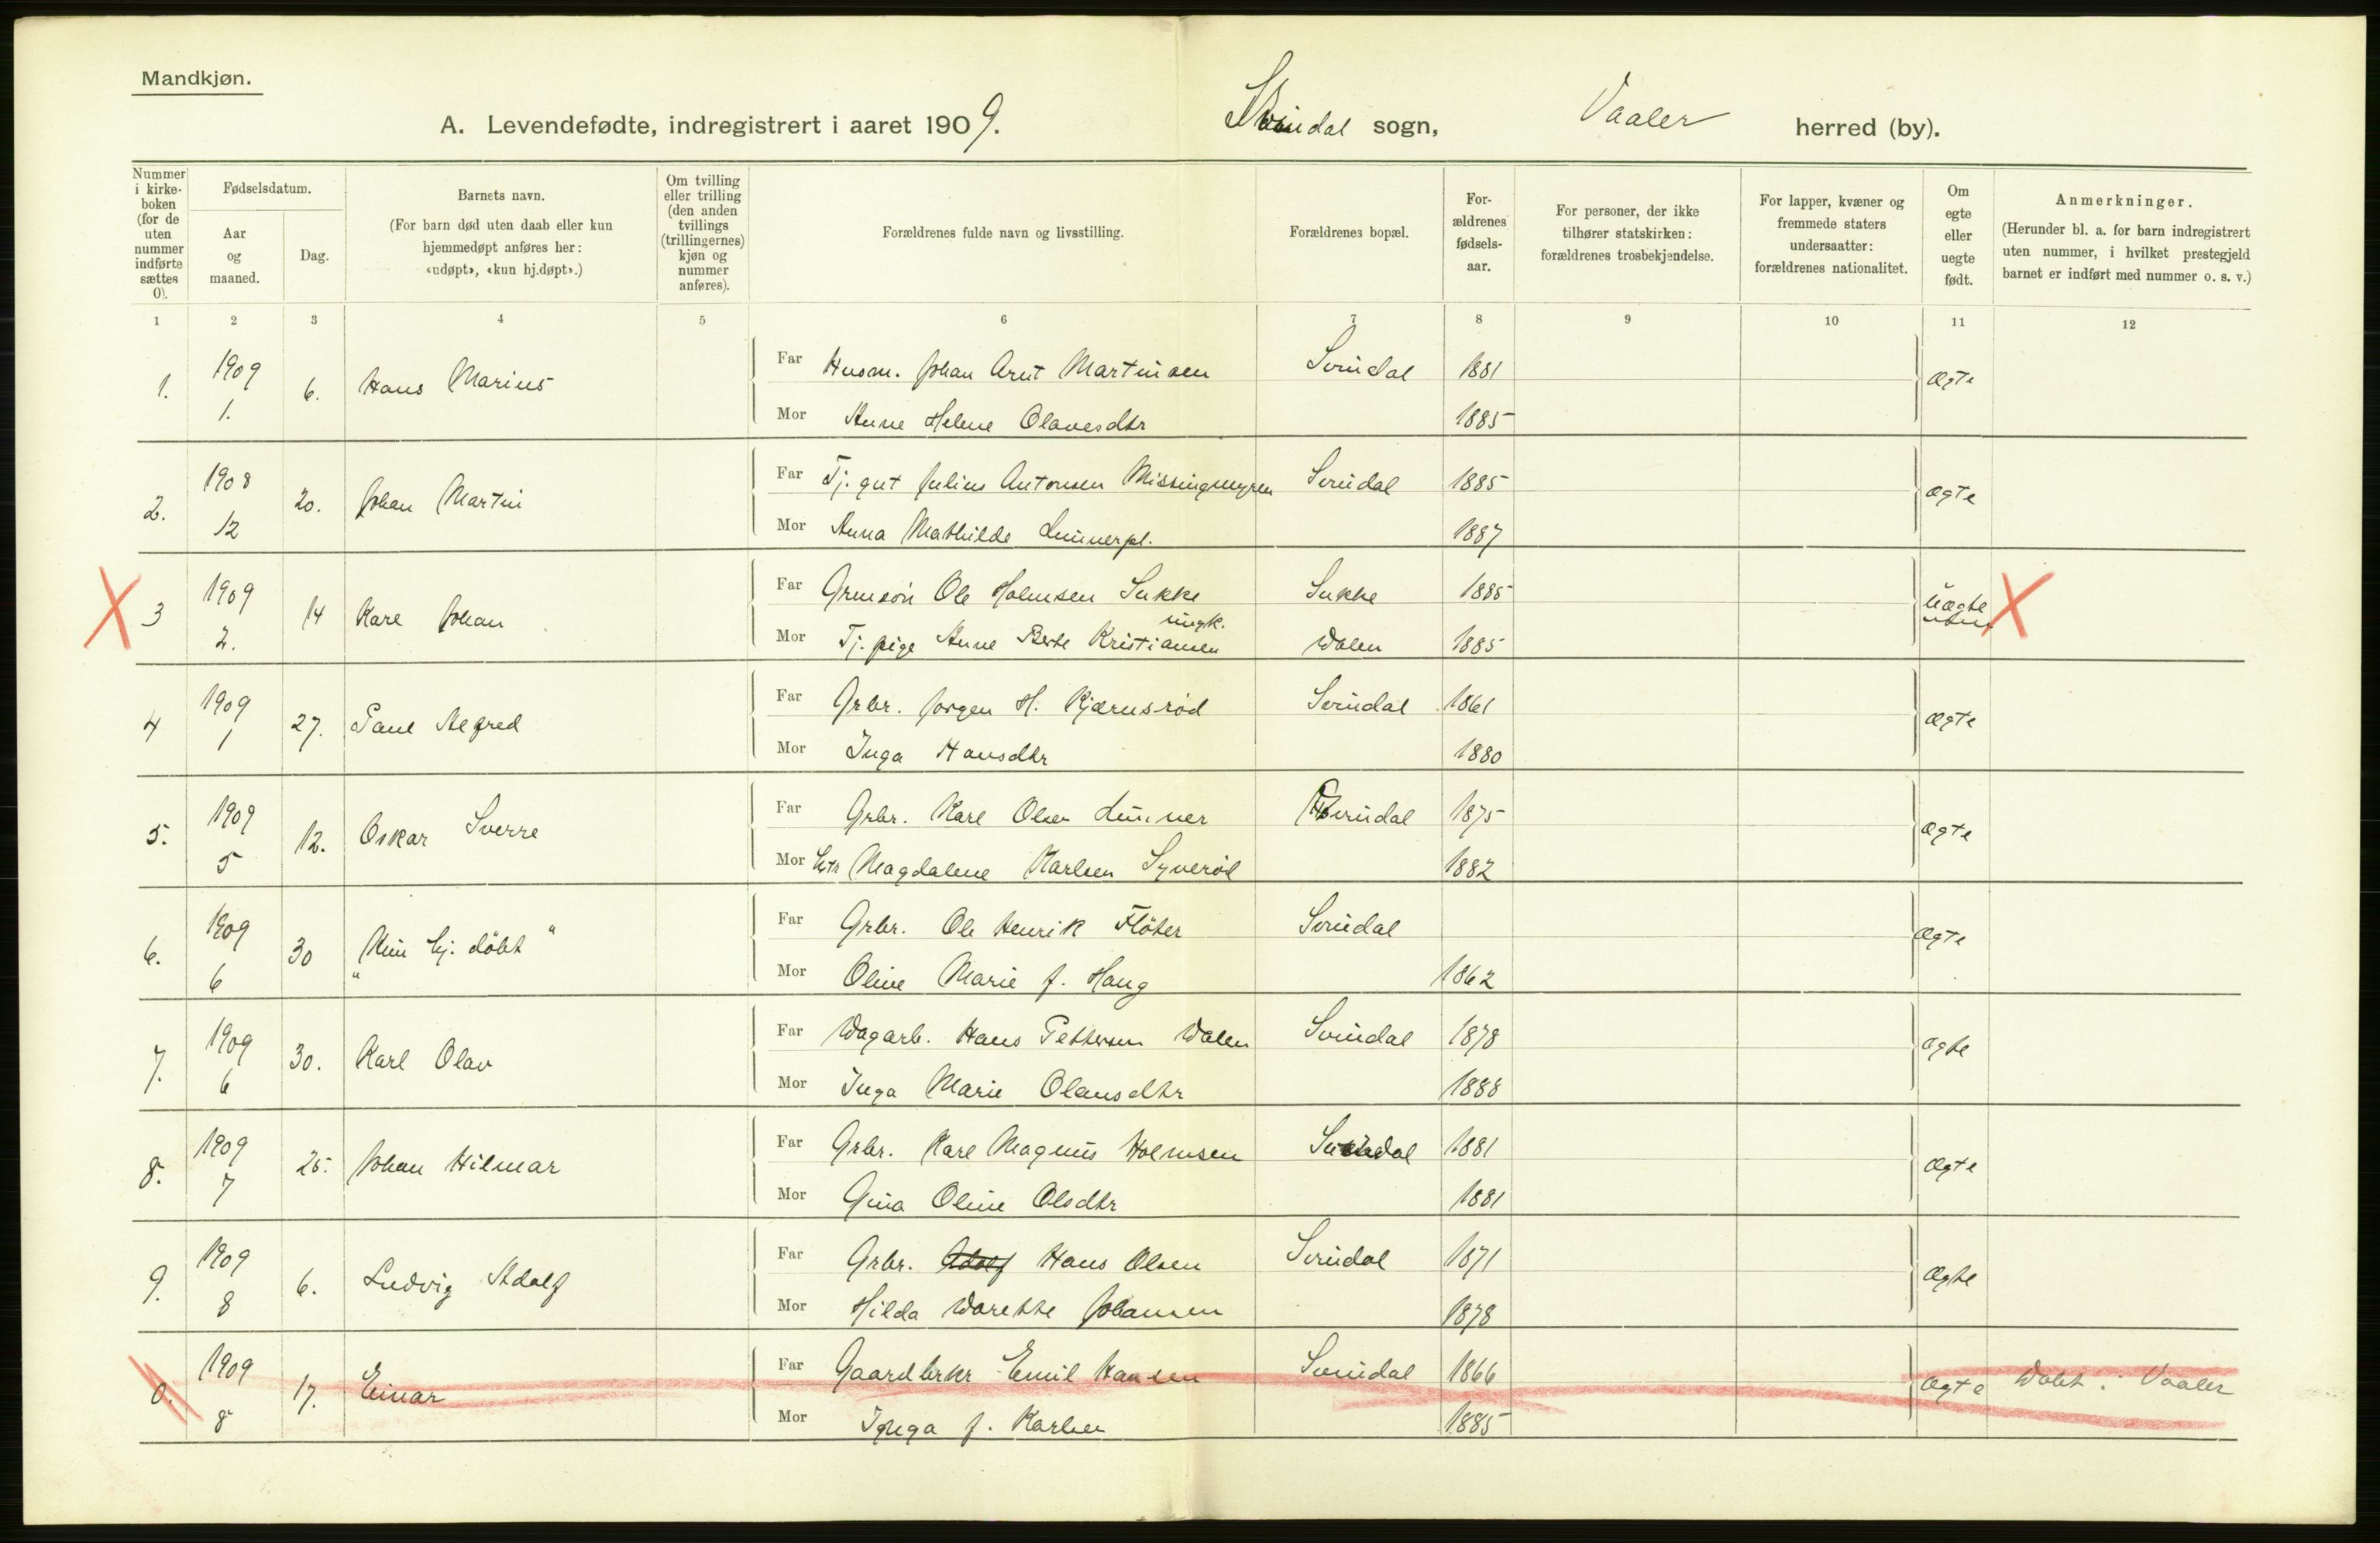 Mandkjøn.
A. Levendefødte, indregistrert i aaret 1909. Svindal sogn, Vaaler herred (by).
Nummer i kirkeboken (for de uten nummer indførte sættes 0).
Fødselsdatum.
Aar og maaned.
Dag.
Barnets navn.
(For barn død uten daab eller kun hjemmedøpt anføres her: «udøpt», «kun hj.døpt».)
Om tvilling eller trilling (den anden tvillings (trillingernes) kjøn og nummer anføres).
Forældrenes fulde navn og livsstilling.
Forældrenes bopæl.
Forældrenes fødselsaar.
For personer, der ikke tilhører statskirken: forældrenes trosbekjendelse.
For lapper, kvæner og fremmede staters undersaatter: forældrenes nationalitet.
Om egte eller uegte født.
Anmerkninger.
(Herunder bl. a. for barn indregistrert uten nummer, i hvilket prestegjeld barnet er indført med nummer o. s. v.)
1 2 3 4 5 6 7 8 9 10 11 12
1. 1909 1. 6. Hans Marius Far Husm. Johan Arnt Martinsen Svindal 1881 Ægte
Mor Anne Helene Olavesdtr 1885
2. 1908 12 20. Johan Martin Far Tj. gut Julius Antonsen Missingmyren Svindal 1885 ægte
Mor Anna Mathilde Linnerpl. 1887
X 3 1909 2. 14 Karl Johan Far Grmsøn Ole Holmsen Sukke Sukke 1885 Uægte X
Mor Tj. pige Anne Berte Kristiansen ungk. Dalen 1885
4 1909 1 27. Paul Alfred Far Grbr. Jørgen H. Kjærnsrød Svindal 1861 Ægte
Mor Inga Hansdtr 1880
5. 1909 5 12. Oskar Sverre Far Grbr. Karl Olsen Linner Svindal 1875 ægte
Mor Magdalene Karlsen Synerød 1882
6. 1909 6 30 "Kun hj. döbt" Far Grbr. Ole Henrik Flöter Svindal Ægte
Mor Oline Marie f. Haug 1862
7. 1909 6 30. Karl Olav Far Dagarb. Hans Pettersen Dalen Svindal 1878 ægte
Mor Inga Marie Olausdtr 1888
8. 1909 7 25. Johan Hilmar Far Grbr. Karl Magnus Holmsen Svindal 1881 Ægte
Mor Gina Oline Olsdtr 1881
9. 1909 8 6. Ludvig Adolf Far Grbr. Adolf Hans Olsen Svindal 1871 Ægte
Mor Hilda Dorethe Johansen 1878
0. 1909 8 17. Einar Far Gaardbrkr Emil Hansen Svindal 1866 Ægte Döbt i Vaaler
Mor Inga f. Karlsen 1885